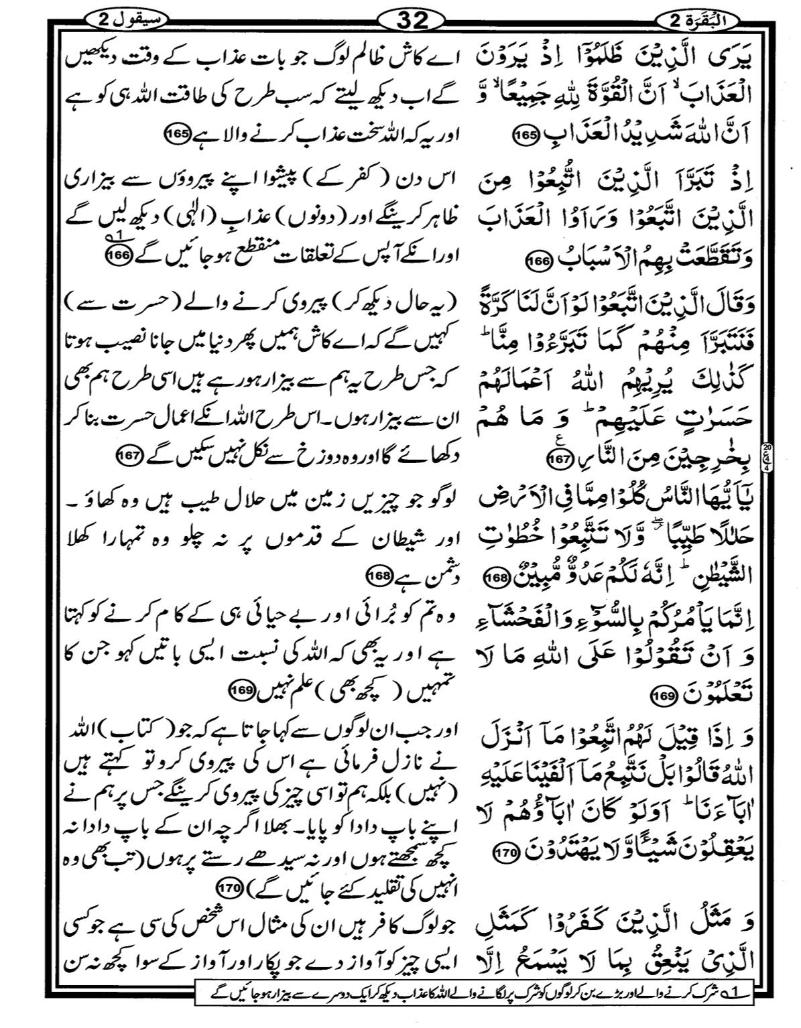 اَلْبَقَرَة 2
32
سیقول 2
يَرَى الَّذِيْنَ ظَلَمُوْٓا اِذْ يَرَوْنَ
الْعَذَابَ ۙ اَنَّ الْقُوَّةَ لِلّٰهِ جَمِيْعًا ۙ وَّ
اَنَّ اللّٰهَ شَدِيْدُ الْعَذَابِ 165
اِذْ تَبَرَّاَ الَّذِيْنَ اتُّبِعُوْا مِنَ
الَّذِيْنَ اتَّبَعُوْا وَرَاَوُا الْعَذَابَ
وَتَقَطَّعَتْ بِهِمُ الْاَسْبَابُ 166
وَقَالَ الَّذِيْنَ اتَّبَعُوْا لَوْ اَنَّ لَنَا كَرَّةً
فَنَتَبَرَّاَ مِنْهُمْ كَمَا تَبَرَّءُوْا مِنَّا ؕ
كَذٰلِكَ يُرِيْهِمُ اللّٰهُ اَعْمَالَهُمْ
حَسَرٰتٍ عَلَيْهِمْ ؕ وَ مَا هُمْ
بِخٰرِجِيْنَ مِنَ النَّارِ 167 ع
يٰٓاَيُّهَا النَّاسُ كُلُوْا مِمَّا فِى الْاَرْضِ
حَلٰلًا طَيِّبًا ۖ وَّلَا تَتَّبِعُوْا خُطُوٰتِ
الشَّيْطٰنِ ؕ اِنَّهٗ لَكُمْ عَدُوٌّ مُّبِيْنٌ 168
اِنَّمَا يَاْمُرُكُمْ بِالسُّوْٓءِ وَالْفَحْشَآءِ
وَ اَنْ تَقُوْلُوْا عَلَى اللّٰهِ مَا لَا
تَعْلَمُوْنَ 169
وَ اِذَا قِيْلَ لَهُمُ اتَّبِعُوْا مَآ اَنْزَلَ
اللّٰهُ قَالُوْا بَلْ نَتَّبِعُ مَآ اَلْفَيْنَا عَلَيْهِ
اٰبَآءَنَا ؕ اَوَلَوْ كَانَ اٰبَآؤُهُمْ لَا
يَعْقِلُوْنَ شَيْـًٔا وَّلَا يَهْتَدُوْنَ 170
وَ مَثَلُ الَّذِيْنَ كَفَرُوْا كَمَثَلِ
الَّذِىْ يَنْعِقُ بِمَا لَا يَسْمَعُ اِلَّا
اے کاش ظالم لوگ جو بات عذاب کے وقت دیکھیں
گے اب دیکھ لیتے کہ سب طرح کی طاقت اللہ ہی کو ہے
اور یہ کہ اللہ سخت عذاب کرنے والا ہے 165
اس دن (کفر کے) پیشوا اپنے پیروؤں سے بیزاری
ظاہر کرینگے اور (دونوں) عذابِ (الٰہی) دیکھ لیں گے
اور انکے آپس کے تعلقات منقطع ہو جائیں گے 1 166
(یہ حال دیکھ کر) پیروی کرنے والے (حسرت سے)
کہیں گے کہ اے کاش ہمیں پھر دنیا میں جانا نصیب ہوتا
کہ جس طرح یہ ہم سے بیزار ہو رہے ہیں اسی طرح ہم بھی
ان سے بیزار ہوں۔ اس طرح اللہ انکے اعمال حسرت بنا کر
دکھائے گا اور وہ دوزخ سے نکل نہیں سکیں گے 167
لوگو جو چیزیں زمین میں حلال طیب ہیں وہ کھاؤ ۔
اور شیطان کے قدموں پر نہ چلو وہ تمہارا کھلا
دشمن ہے 168
وہ تم کو بُرائی اور بے حیائی ہی کے کام کرنے کو کہتا
ہے اور یہ بھی کہ اللہ کی نسبت ایسی باتیں کہو جن کا
تمہیں (کچھ بھی) علم نہیں 169
اور جب ان لوگوں سے کہا جاتا ہے کہ جو (کتاب) اللہ
نے نازل فرمائی ہے اس کی پیروی کرو تو کہتے ہیں
(نہیں) بلکہ ہم تو اسی چیز کی پیروی کرینگے جس پر ہم نے
اپنے باپ دادا کو پایا۔ بھلا اگرچہ ان کے باپ دادا نہ
کچھ سمجھتے ہوں اور نہ سیدھے رستے پر ہوں (تب بھی وہ
انہیں کی تقلید کئے جائیں گے) 170
جو لوگ کافر ہیں ان کی مثال اس شخص کی سی ہے جو کسی
ایسی چیز کو آواز دے جو پکار اور آواز کے سوا کچھ نہ سن
1 شرک کرنے والے اور بڑے بن کر لوگوں کو شرک پر لگانے والے اللہ کا عذاب دیکھ کر ایک دوسرے سے بیزار ہو جائیں گے